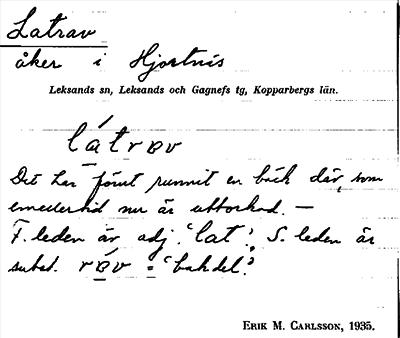 Latrav
åker i Hjortnäs
Leksands sn, Leksands och Gagnefs tg, Kopparbergs län.
látrɐv
Det har förut runnit en bäck där, som
emellertid nu är uttorkad. —
F. leden är adj. 'lat', S. leden är
subst. rɐv = 'bakdel'.
ERIK M. CARLSSON, 1935.